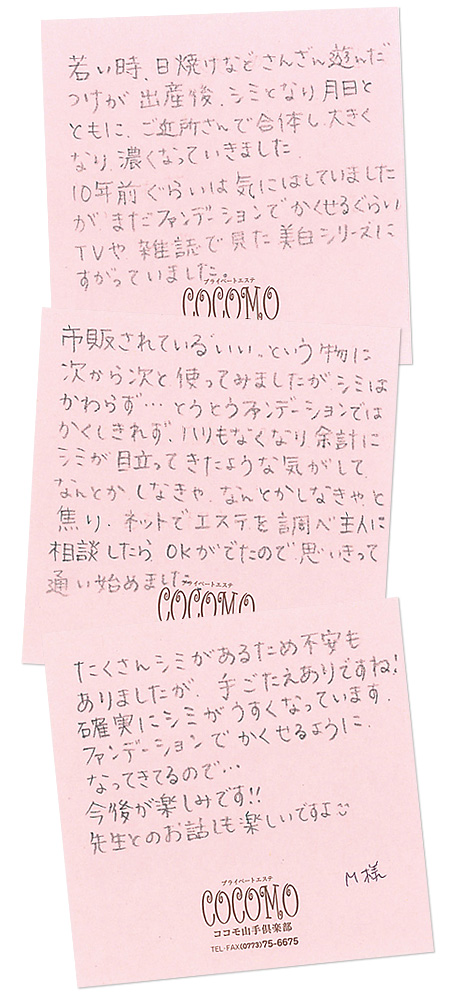 若い時、日焼けなどさんざん遊んだ
つけが出産後、シミとなり月日と
ともに、ご近所さんで合体し大きく
なり濃くなっていきました。
10年前ぐらいは気にはしていました
がまだファンデーションでかくせるぐらい
TVや雑誌で見た美白シリーズに
すがっていました。
プライベートエステ
COCOMO
市販されている"いい"という物に
次から次と使ってみましたがシミは
かわらず… とうとうファンデーションでは
かくしきれず、ハリもなくなり余計に
シミが目立ってきたような気がして
なんとかしなきゃ、なんとかしなきゃと
焦り、ネットでエステを調べ主人に
相談したら OKがでたので思いきって
通い始めました
プライベートエステ
COCOMO
たくさんシミがあるため不安も
ありましたが、手ごたえありですね!
確実にシミがうすくなっています。
ファンデーションでかくせるように、
なってきてるので…
今後が楽しみです!!
先生とのお話しも楽しいですよ
M様
プライベートエステ
COCOMO
ココモ山手倶楽部
TEL・FAX(0773)75-6675